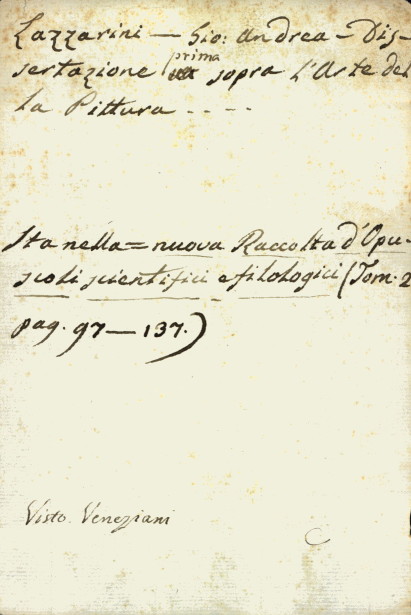 Lazzarini — Gio: Andrea - Dis-
sertazione prima sopra l'Arte del
la Pittura - - - -
Sta nella = nuova Raccolta d'Opu-
scoli scientifici e filologici (Tom. 2
pag. 97 — 137.)
Visto Veneziani